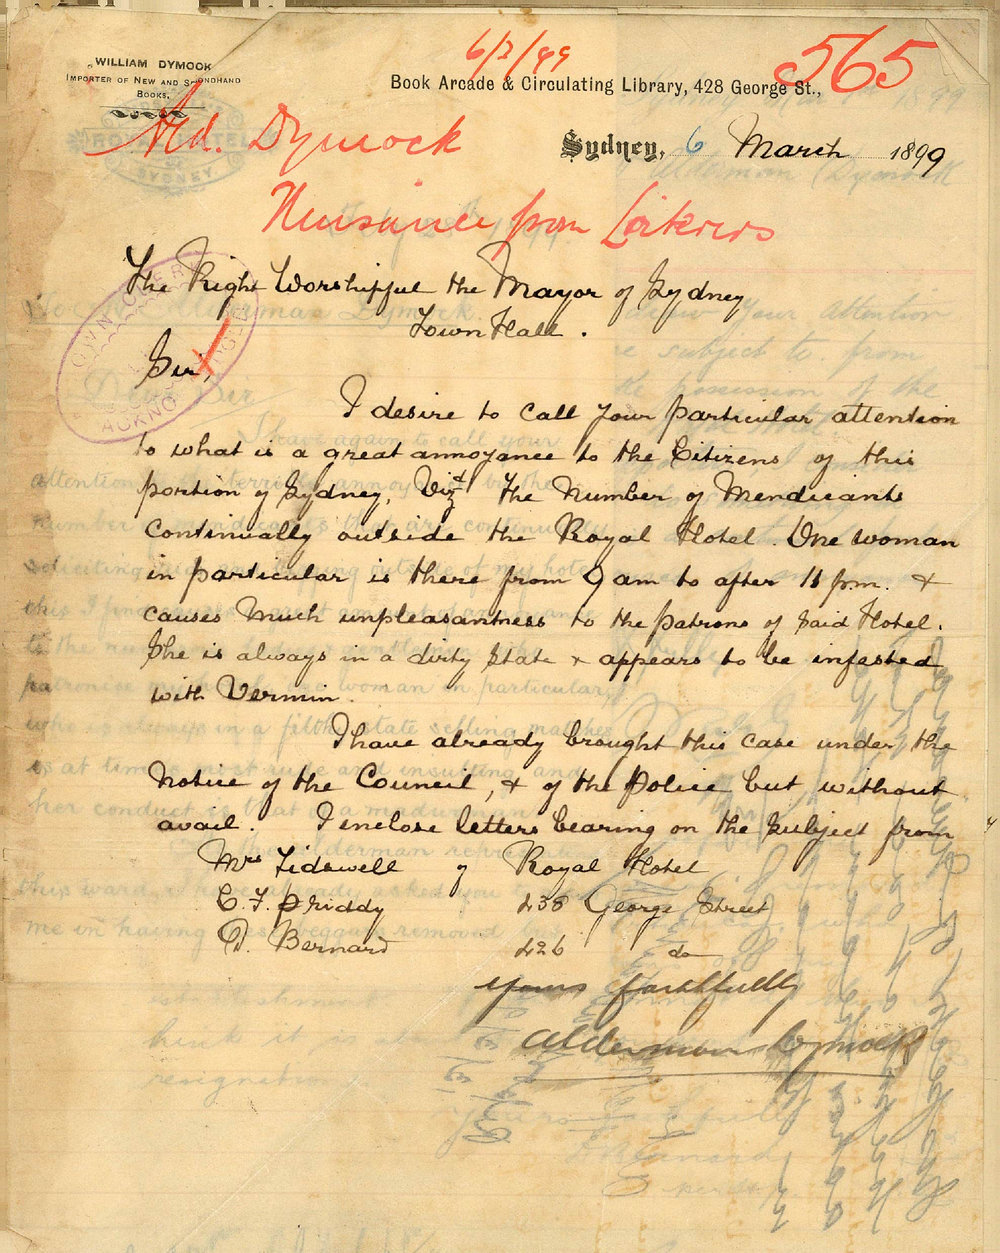 6/3/99
565
WILLIAM DYMOCK
IMPORTER OF NEW AND SECONDHAND
BOOKS.
Book Arcade & Circulating Library, 428 George St.,
Ald. Dymock
Sydney, 6 March 1899
Nuisance from Loiterers
The Right Worshipful the Mayor of Sydney
Town Hall.
Sir,
I desire to call your particular attention
to what is a great annoyance to the Citizens of this
portion of Sydney, Vizt The Number of Mendicants
continually outside the Royal Hotel. One woman
in particular is there from 9 am to after 11 p.m. &
causes much unpleasantness to the patrons of said Hotel.
She is always in a dirty state & appears to be infested
with Vermin.
I have already brought this case under the
notice of the Council, & of the Police but without
avail. I enclose letters bearing on the subject from
Mrs Tidswell of Royal Hotel
C. F. Priddy 438 George Street
D. Bernard 426 do
Yours faithfully
Alderman Dymock